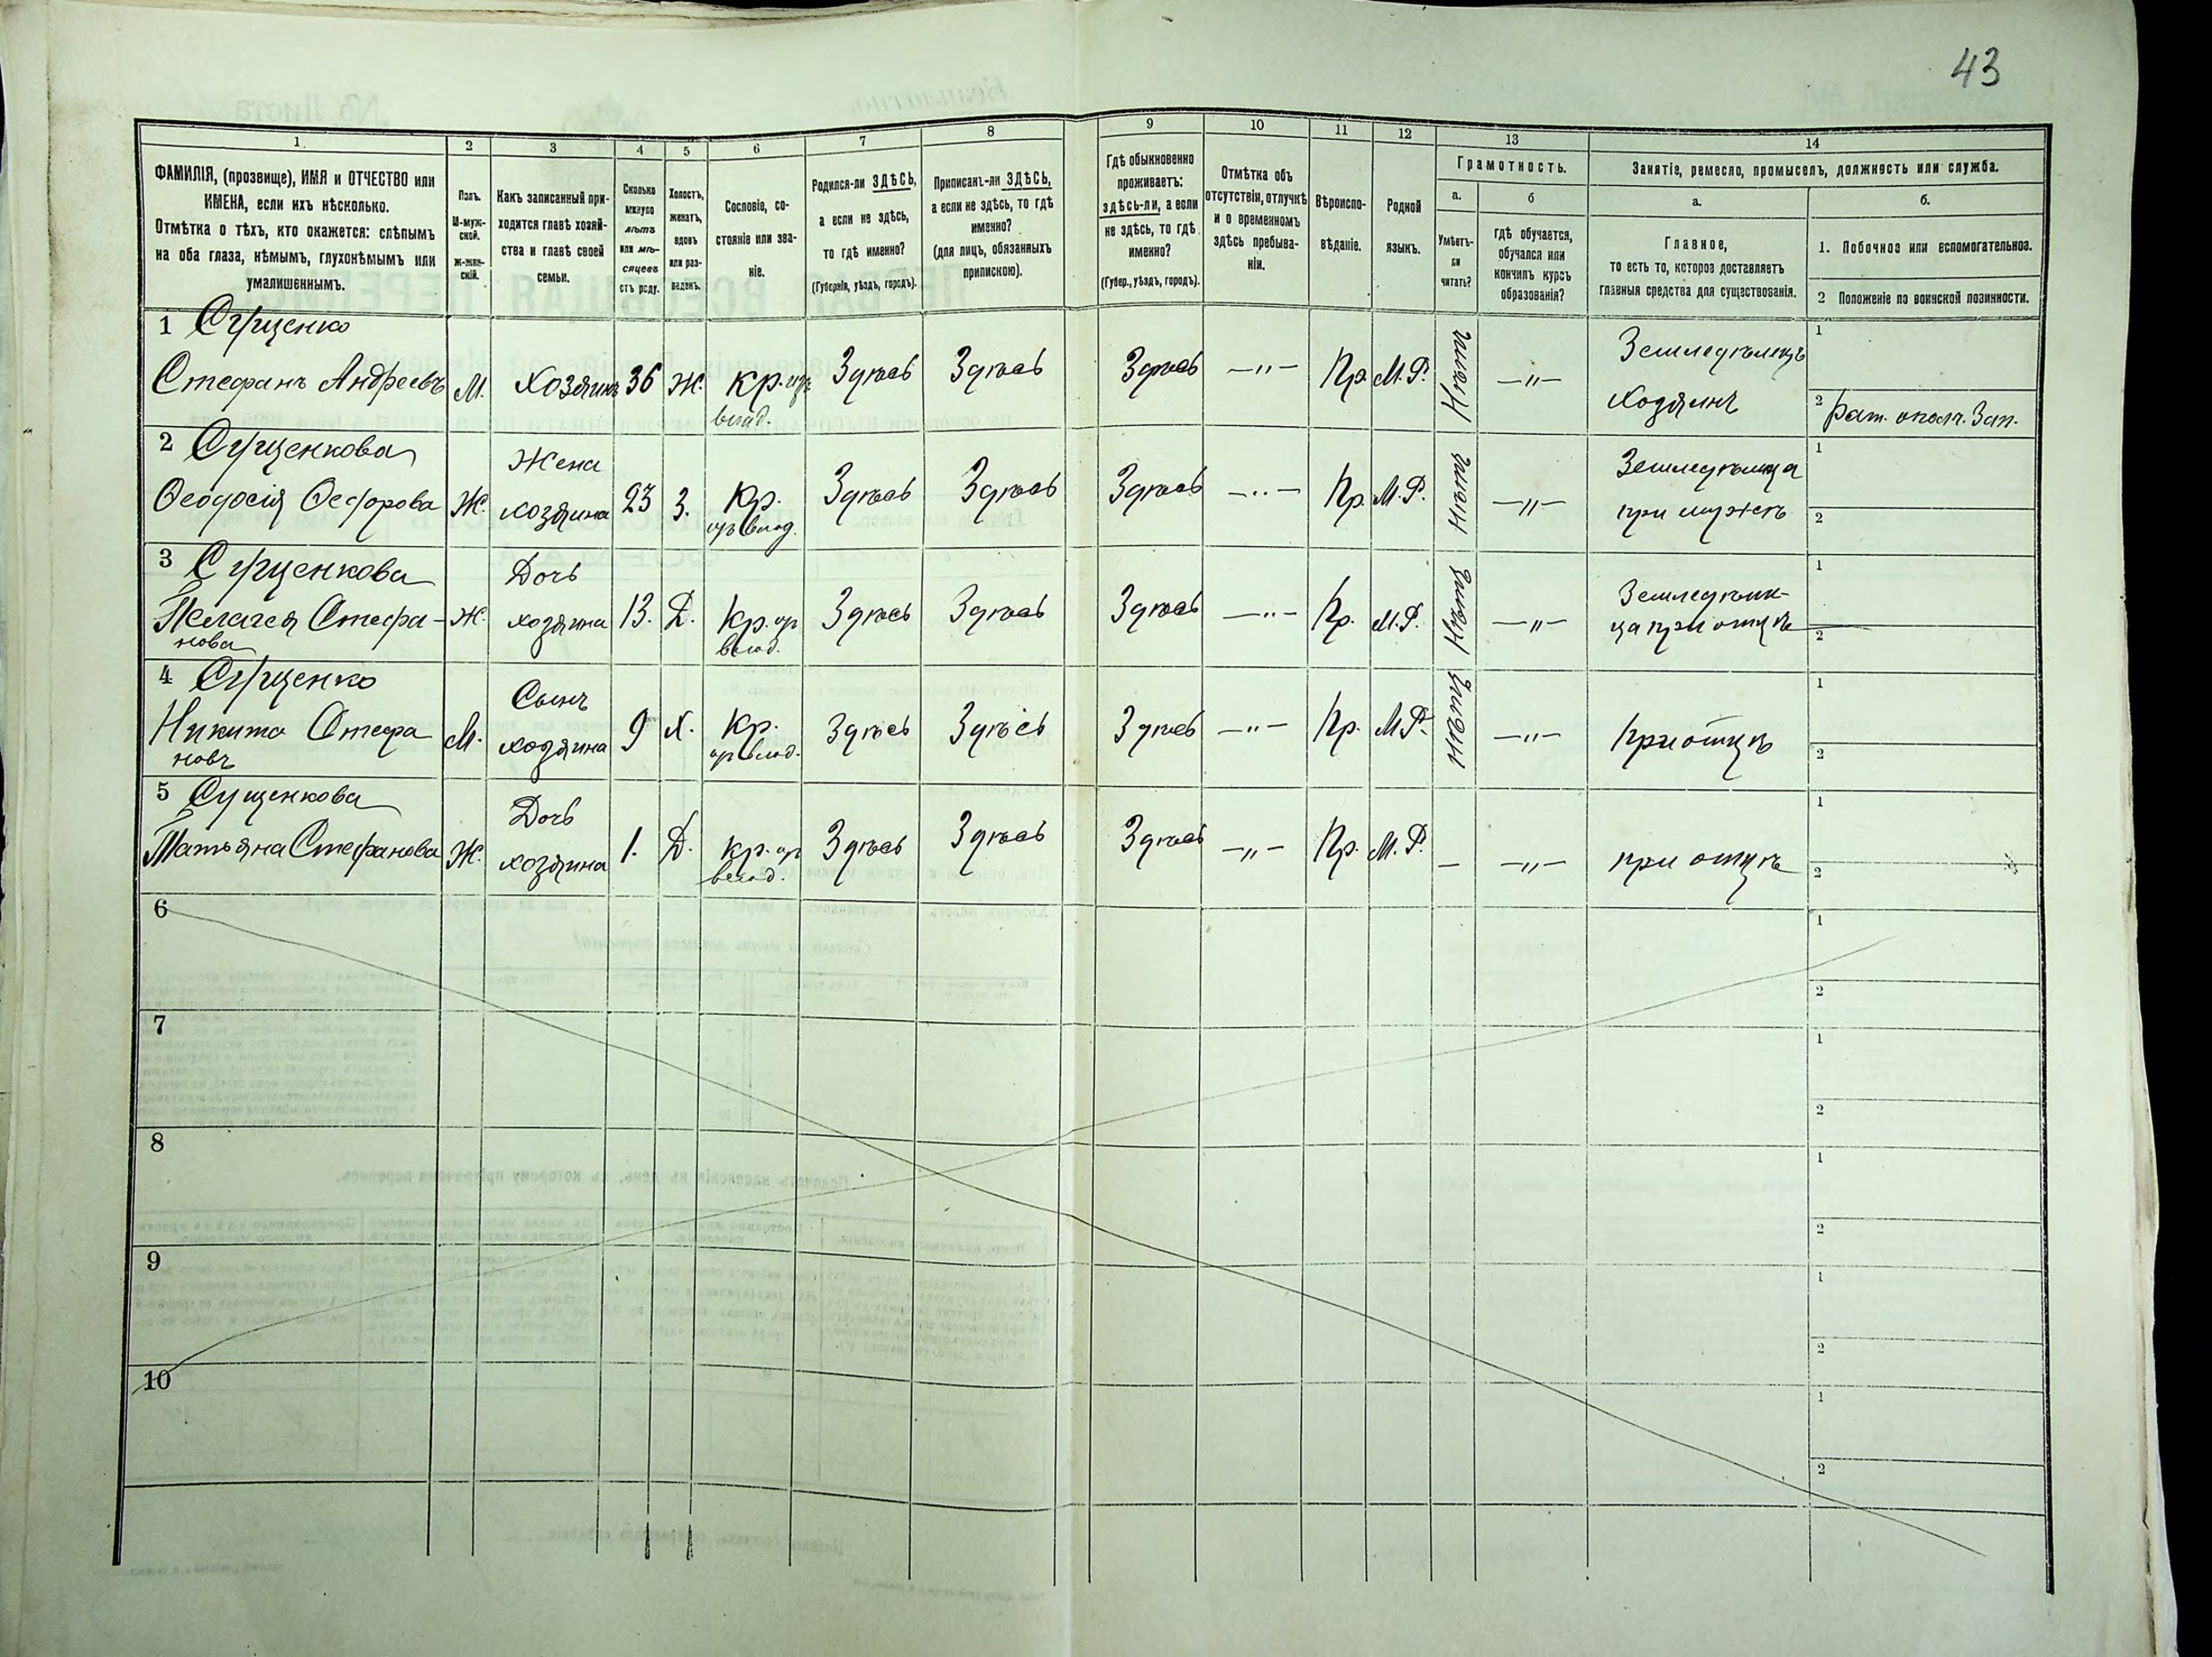 43
1 2 3 4 5 6 7 8 9 10 11 12 13 14
ФАМИЛІЯ, (прозвище), ИМЯ и ОТЧЕСТВО или
ИМЕНА, если ихъ нѣсколько.
Отмѣтка о тѣхъ, кто окажется: слѣпымъ
на оба глаза, нѣмымъ, глухонѣмымъ или
умалишеннымъ.
Полъ.
М-муж-
ской.
ж-жен-
скій.
Какъ записанный при-
ходится главѣ хозяй-
ства и главѣ своей
семьи.
Сколько
минуло
лѣтъ
или мѣ-
сяцевъ
отъ роду.
Холостъ,
женатъ,
вдовъ
или раз-
веденъ.
Сословіе, со-
стояніе или зва-
ніе.
Родился-ли ЗДѢСЬ,
а если не здѣсь,
то гдѣ именно?
(Губернія, уѣздъ, городъ).
Приписанъ-ли ЗДѢСЬ,
а если не здѣсь, то гдѣ
именно?
(для лицъ, обязанныхъ
припискою).
Гдѣ обыкновенно
проживаетъ:
здѣсь-ли, а если
не здѣсь, то гдѣ
именно?
(Губер., уѣздъ, городъ).
Отмѣтка объ
отсутствіи, отлучкѣ
и о временномъ
здѣсь пребыва-
ніи.
Вѣроиспо-
вѣданіе.
Родной
языкъ.
Грамотность.
а.
Умѣетъ-
ли
читать?
б
гдѣ обучается,
обучался или
кончилъ курсъ
образованія?
Занятіе, ремесло, промыселъ, должность или служба.
а.
Главное,
то есть то, которое доставляетъ
главныя средства для существованія.
б.
1. Побочное или вспомогательное.
2 Положеніе по воинской повинности.
1 Сущенко
Стефанъ Андреевъ М. Хозяинъ 36 Ж. Кр. изъ Здѣсь Здѣсь Здѣсь —"— Пр. М.Р. Нѣтъ —"— Земледѣлецъ 1
влад.
хозяинъ 2 Рат. ополч. Зап.
2 Сущенкова Жена Земледѣлица 1
Ѳеодосія Ѳедорова Ж. хозяина 23 З. Кр. Здѣсь Здѣсь Здѣсь —"— Пр. М.Р. Нѣтъ —"— при мужѣ 2
изъ влад.
3 Сущенкова Дочь Земледѣли- 1
Пелагея Стефа- Ж. хозяина 13. Д. Кр. из Здѣсь Здѣсь Здѣсь —"— Пр. М.Р. Нѣтъ —"— ца при отцѣ 2
нова влад.
4 Сущенко Сынъ 1
Никита Стефа М. хозяина 9 Х. Кр. Здѣсь Здѣсь Здѣсь —"— Пр. М.Р. Нѣтъ —"— При отцѣ 2
новъ из влад.
5 Сущенкова Дочь 1
Татьяна Стефанова Ж. хозяина 1. Д. Кр. из Здѣсь Здѣсь Здѣсь —"— Пр. М.Р. — —"— при отцѣ 2
влад.
6 1
2
7 1
2
8 1
2
9 1
2
10 1
2